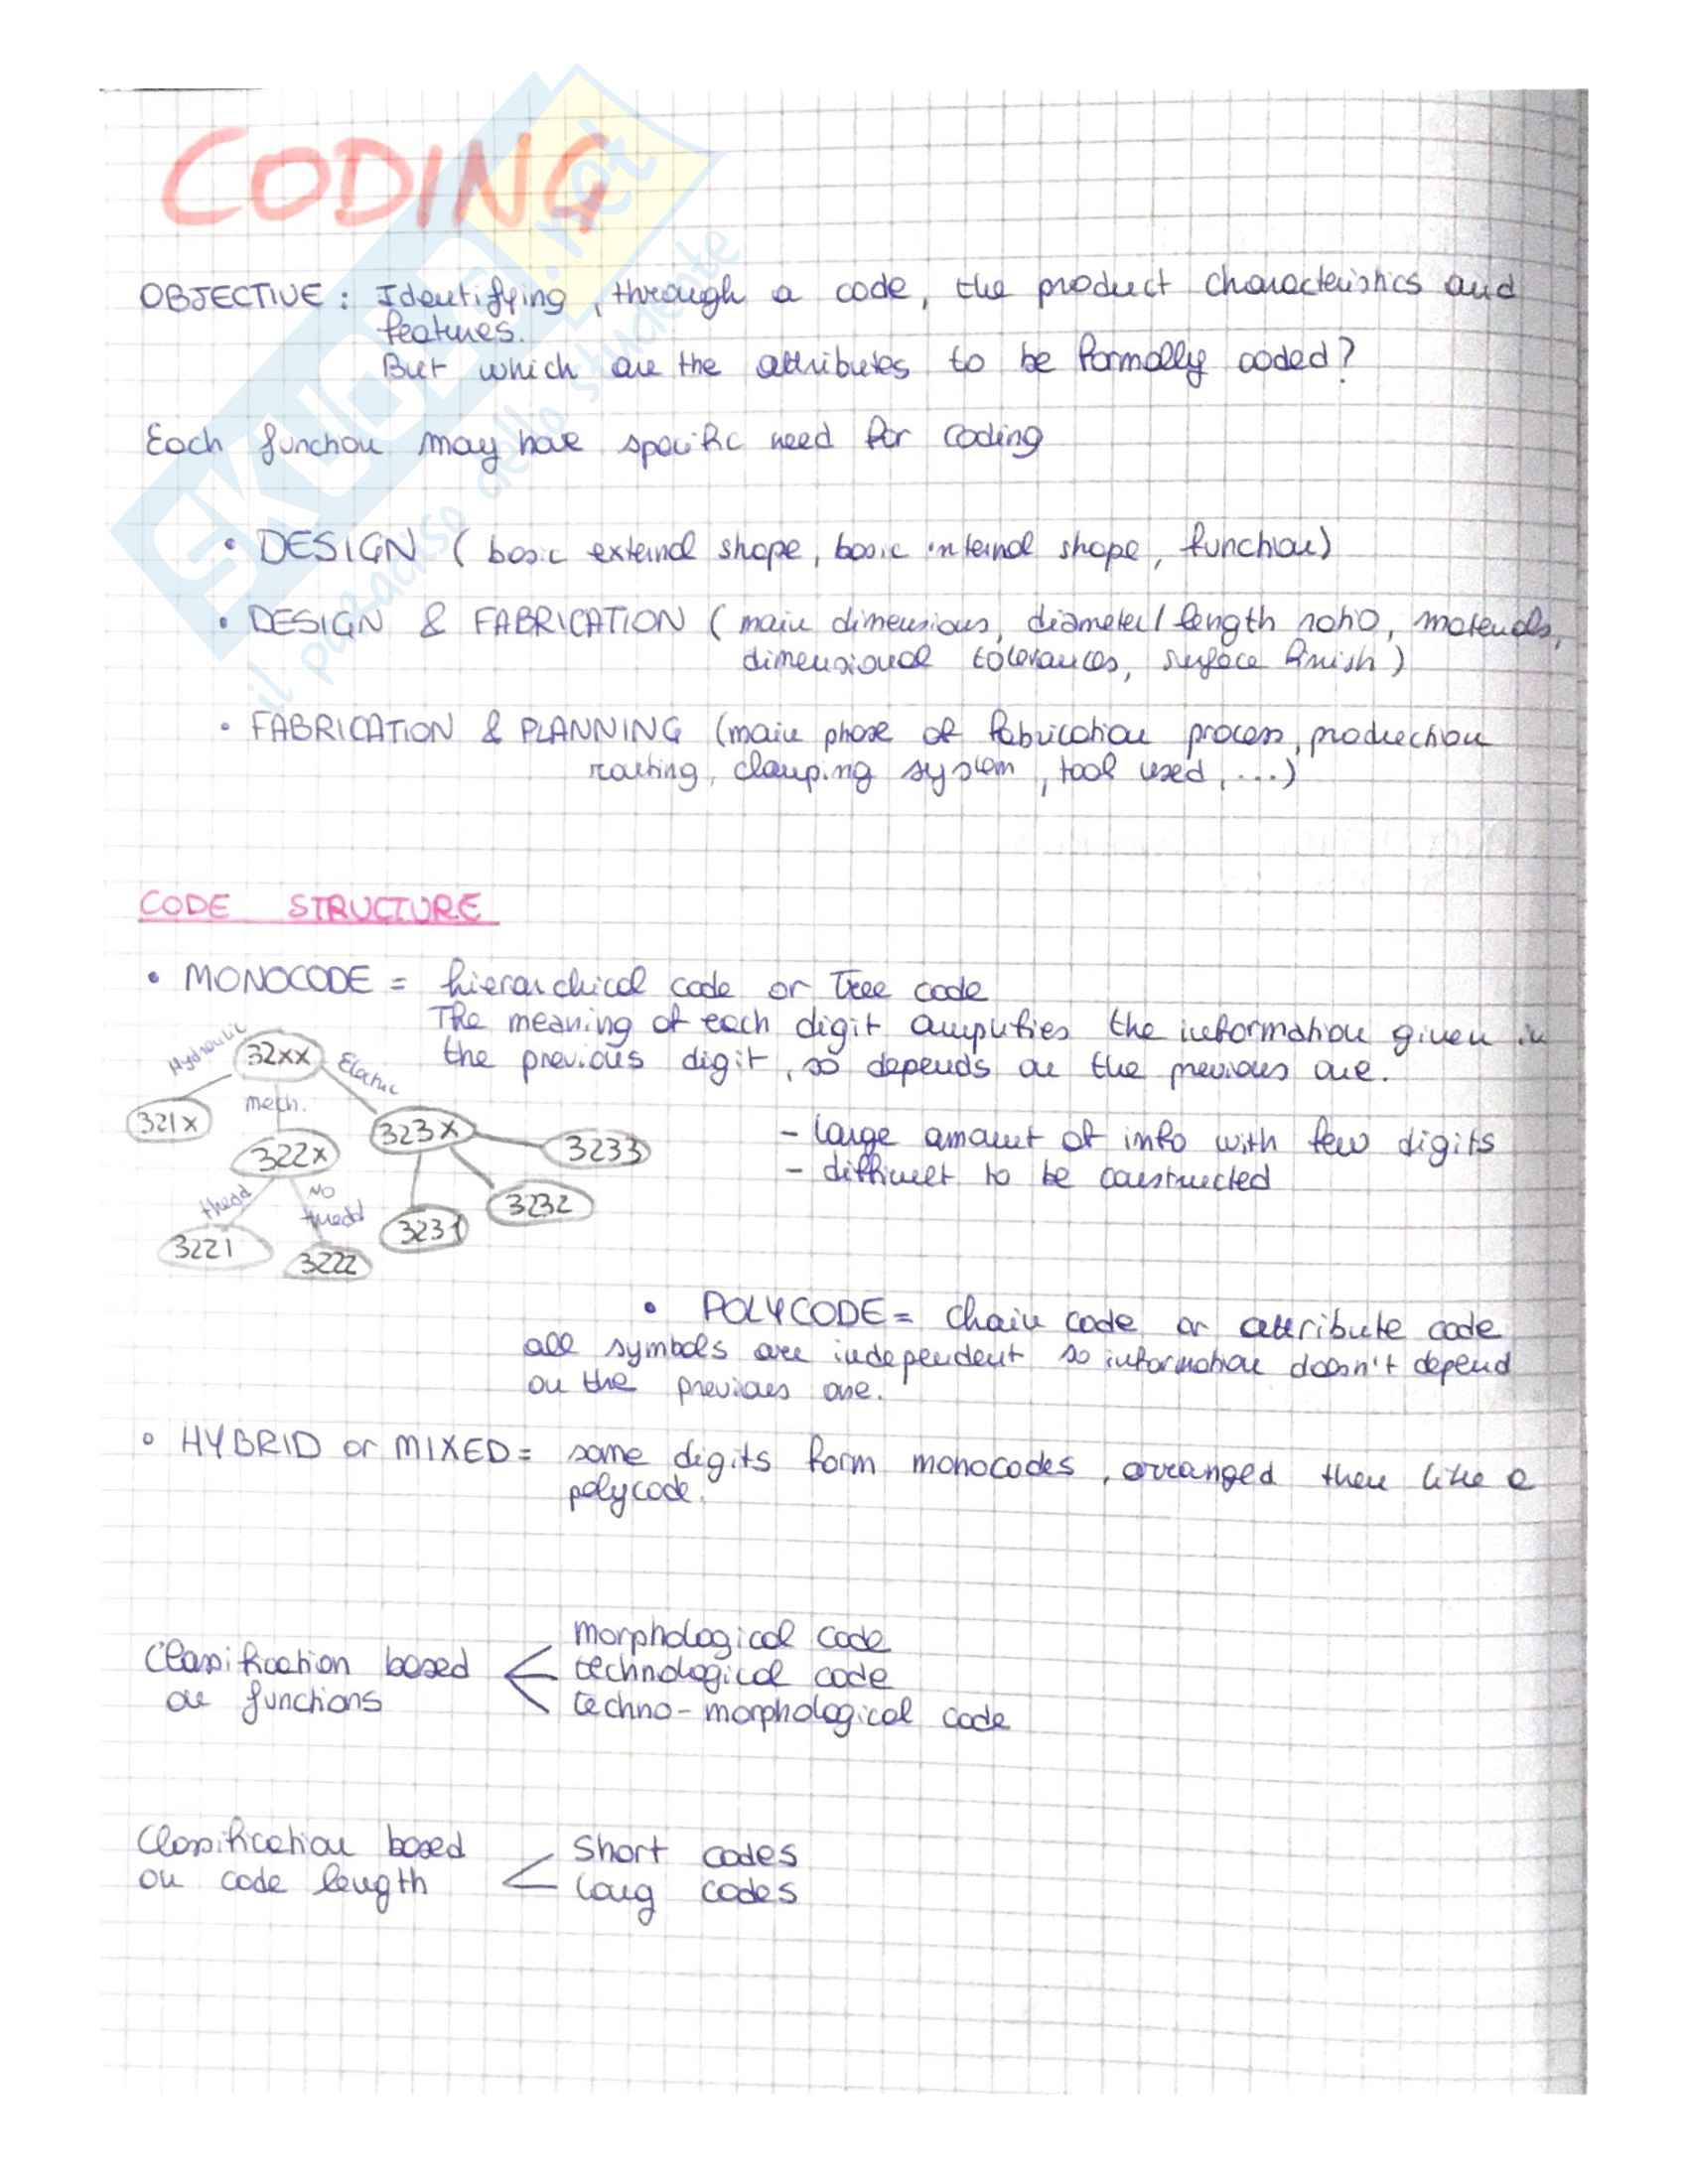 CODING
OBJECTIVE: Identifying, through a code, the product characteristics and
features.
But which are the attributes to be formally coded?
Each function may have specific need for coding
• DESIGN (basic external shape, basic internal shape, function)
• DESIGN & FABRICATION (main dimensions, diameter/length ratio, materials,
dimensional tolerances, surface finish)
• FABRICATION & PLANNING (main phase of fabrication process, production
routing, clamping system, tool used, ...)
CODE STRUCTURE
• MONOCODE = hierarchical code or Tree code
The meaning of each digit amplifies the information given in
the previous digit, so depends on the previous one.
Hydraulic
32xx
Electric
mech.
321x
322x
323x
3233
3232
thead
NO
thread
3231
3221
3222
- large amount of info with few digits
- difficult to be constructed
• POLYCODE = chain code or attribute code
all symbols are independent so information doesn't depend
on the previous one.
• HYBRID or MIXED = some digits form monocodes, arranged then like a
polycode.
Classification based
on functions
morphological code
technological code
techno-morphological code
Classification based
on code length
short codes
long codes
SKUOLA.net
il paradiso dello studente